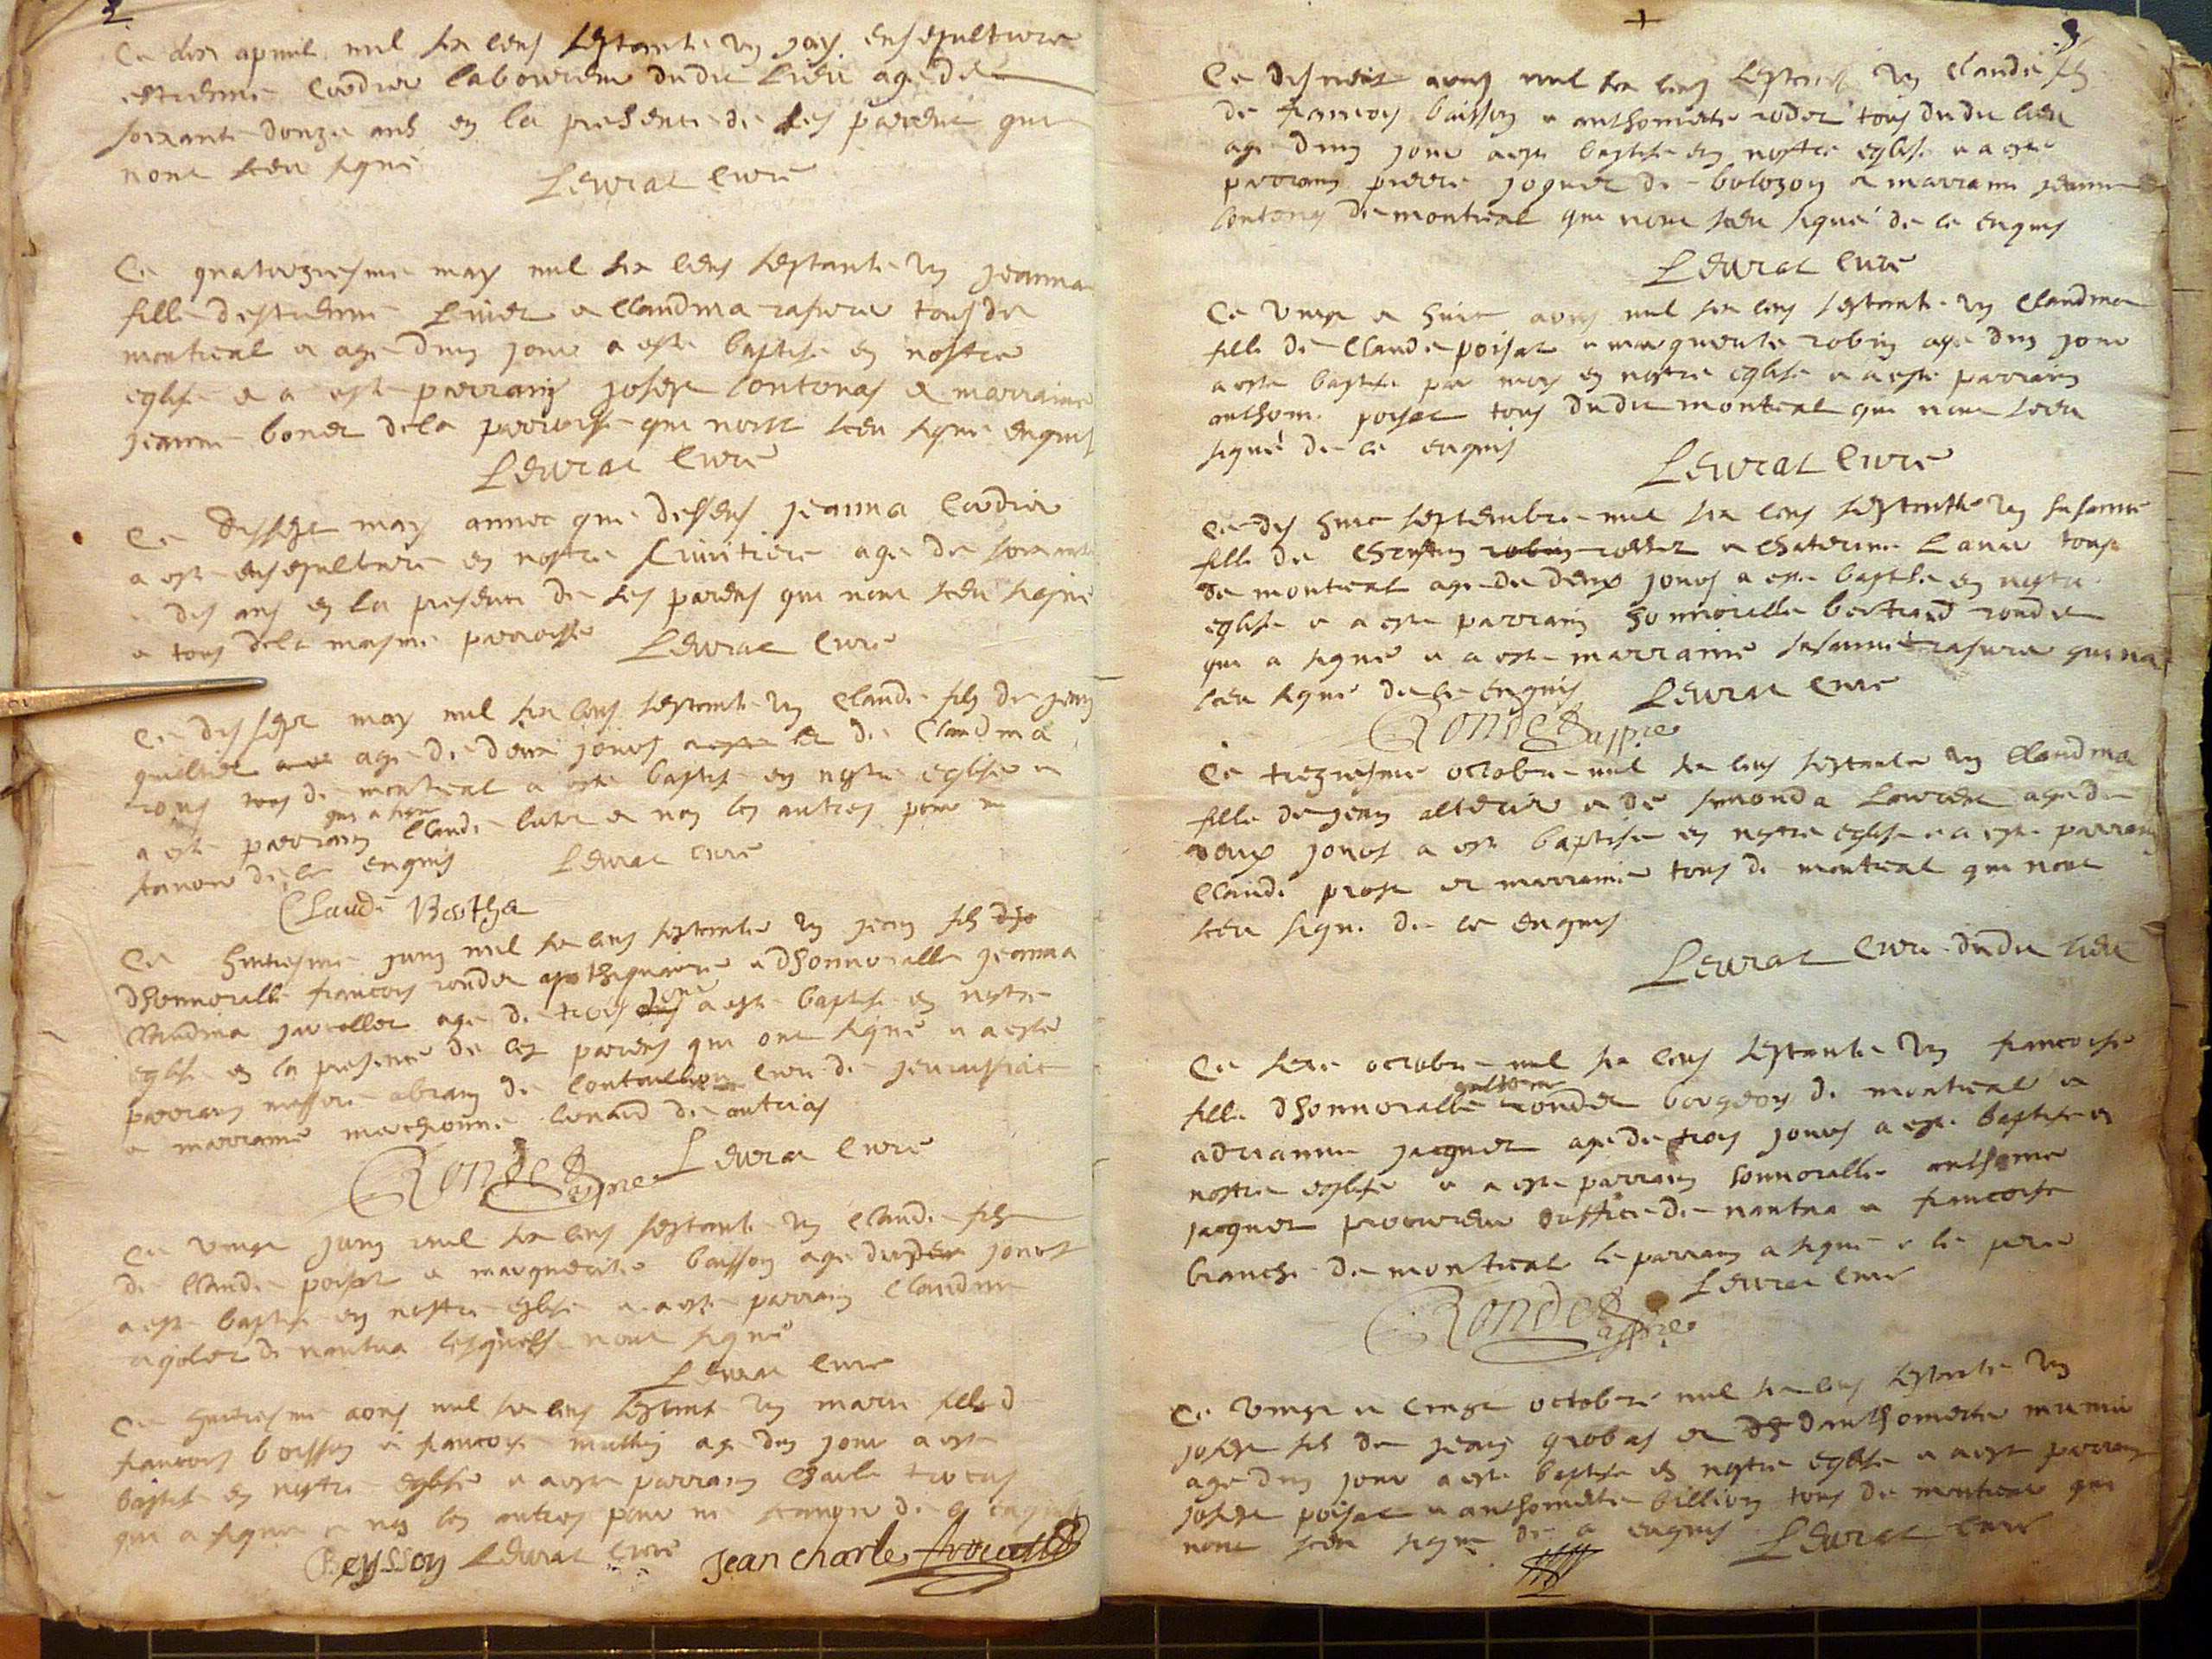 2
Ce dix apvril mil six cens septante un jay ensepulture
estienne Cordier laboureur dudit lieu age de
soixante douze ans en la presence de ses parens qui
nont sceu signe
Leurat Cure
Ce quatorziesme may mil six cens septante un jeanna
fille destienne et Claudina rasurer tous de
montreal et age dun jour a este baptise en nostre
eglise et a este parrain josept Contonas et marraine
jeanne bonet dela parroisse qui nont sceu signe enquis
Leurat Cure
Ce dissept may annee que dessus jeanna Cordier
a este ensepulturé en nostre simitiere age de soixante
dis ans en la presence de ses parens qui nont sceu signe
et tous dela mesme parroisse Leurat Cure
Ce dis sept may mil six cens septante un Claude fils de jean
age de deux jours de Claudina
tous de montreal a este baptise en nostre eglise et
qui a signe
a este parrain Claude et non les autres pour ne
scavoir de ce enquis Leurat Cure
Claude
Ce huitiesme juin mil six cens septante un jean fils
dhonnorable francois rondet apothiquaire et dhonnorable jeanna
Claudina age de trois jours a este baptise en nostre
eglise en la presence de ses parens qui ont signe et a este
parrain messire abram de Cure de
et marraine de
Rondet appre Leurat Cure
Ce vingt juin mil six cens septante un Claude fils
de Claude poisat et marguerite baisson age jours
a este baptise en nostre eglise et a este parrain Claudine
de nantua lesquels nont signe
Leurat Cure
Ce huitiesme aous mil six cens septante un marie fille d
francois boisson et francoise age dun jour a este
baptise en nostre eglise et a este parrain Charle
qui a signe et non les autres pour ne scavoir de ce enquis
Beysson Leurat Cure Jean charles
3
Ce dis neuf aous mil six cens septante un Claude fils
de francois baisson et anthomette rodet tous dudit lieu
age dun jour a este baptise en nostre eglise et a este
parrain pierre joguet de bolozon et marraine jeanne
Contonas de montreal qui nont sceu signe de ce enquis
Leurat Cure
Ce vingt et huit aous mil six cens septante un Claudina
fille de Claude poisat et marguerite robin age dun jour
a este baptise par moy en nostre eglise et a este parrain
anthoine poisat tous dudit montreal qui nont sceu
signe de ce enquis
Leurat Cure
Ce dis huit septembre mil six cens septante un susanne
fille de robin rosset et Chaterine tous
de montreal age de deux jours a este baptise en nostre
eglise et a este parrain honnorable bertrand rondet
qui a signe et a este marraine susanne rasurer qui na
sceu signe de ce enquis Leurat Cure
Rondet appre
Ce treziesme octobre mil six cens septante un Claudina
fille de jean et de simonda Laurent age de
deux jours a este baptise en nostre eglise et a este parrain
Claude prost et marraine tous de montreal qui nont
sceu signe de ce enquis
Leurat Cure dudit lieu
Ce seze octobre mil six cens septante un francoise
anthoine
fille dhonnorable rondet bourgeois de montreal et
adrianne jacquet age de trois jours a este baptise en
nostre eglise et a este parrain honnorable anthoine
jacquet procureur doffice de nantua et francoise
branche de montreal le parrain a signe et le pere
Leurat Cure
Rondet appre
Ce vingt et cinqt octobre mil six cens septante un
josept fils de jean grobas et danthomette
age dun jour a este baptise en nostre eglise et a este parrain
josept poisat et anthomette billion tous de montreal qui
nont sceu signe de ce enquis Leurat Cure